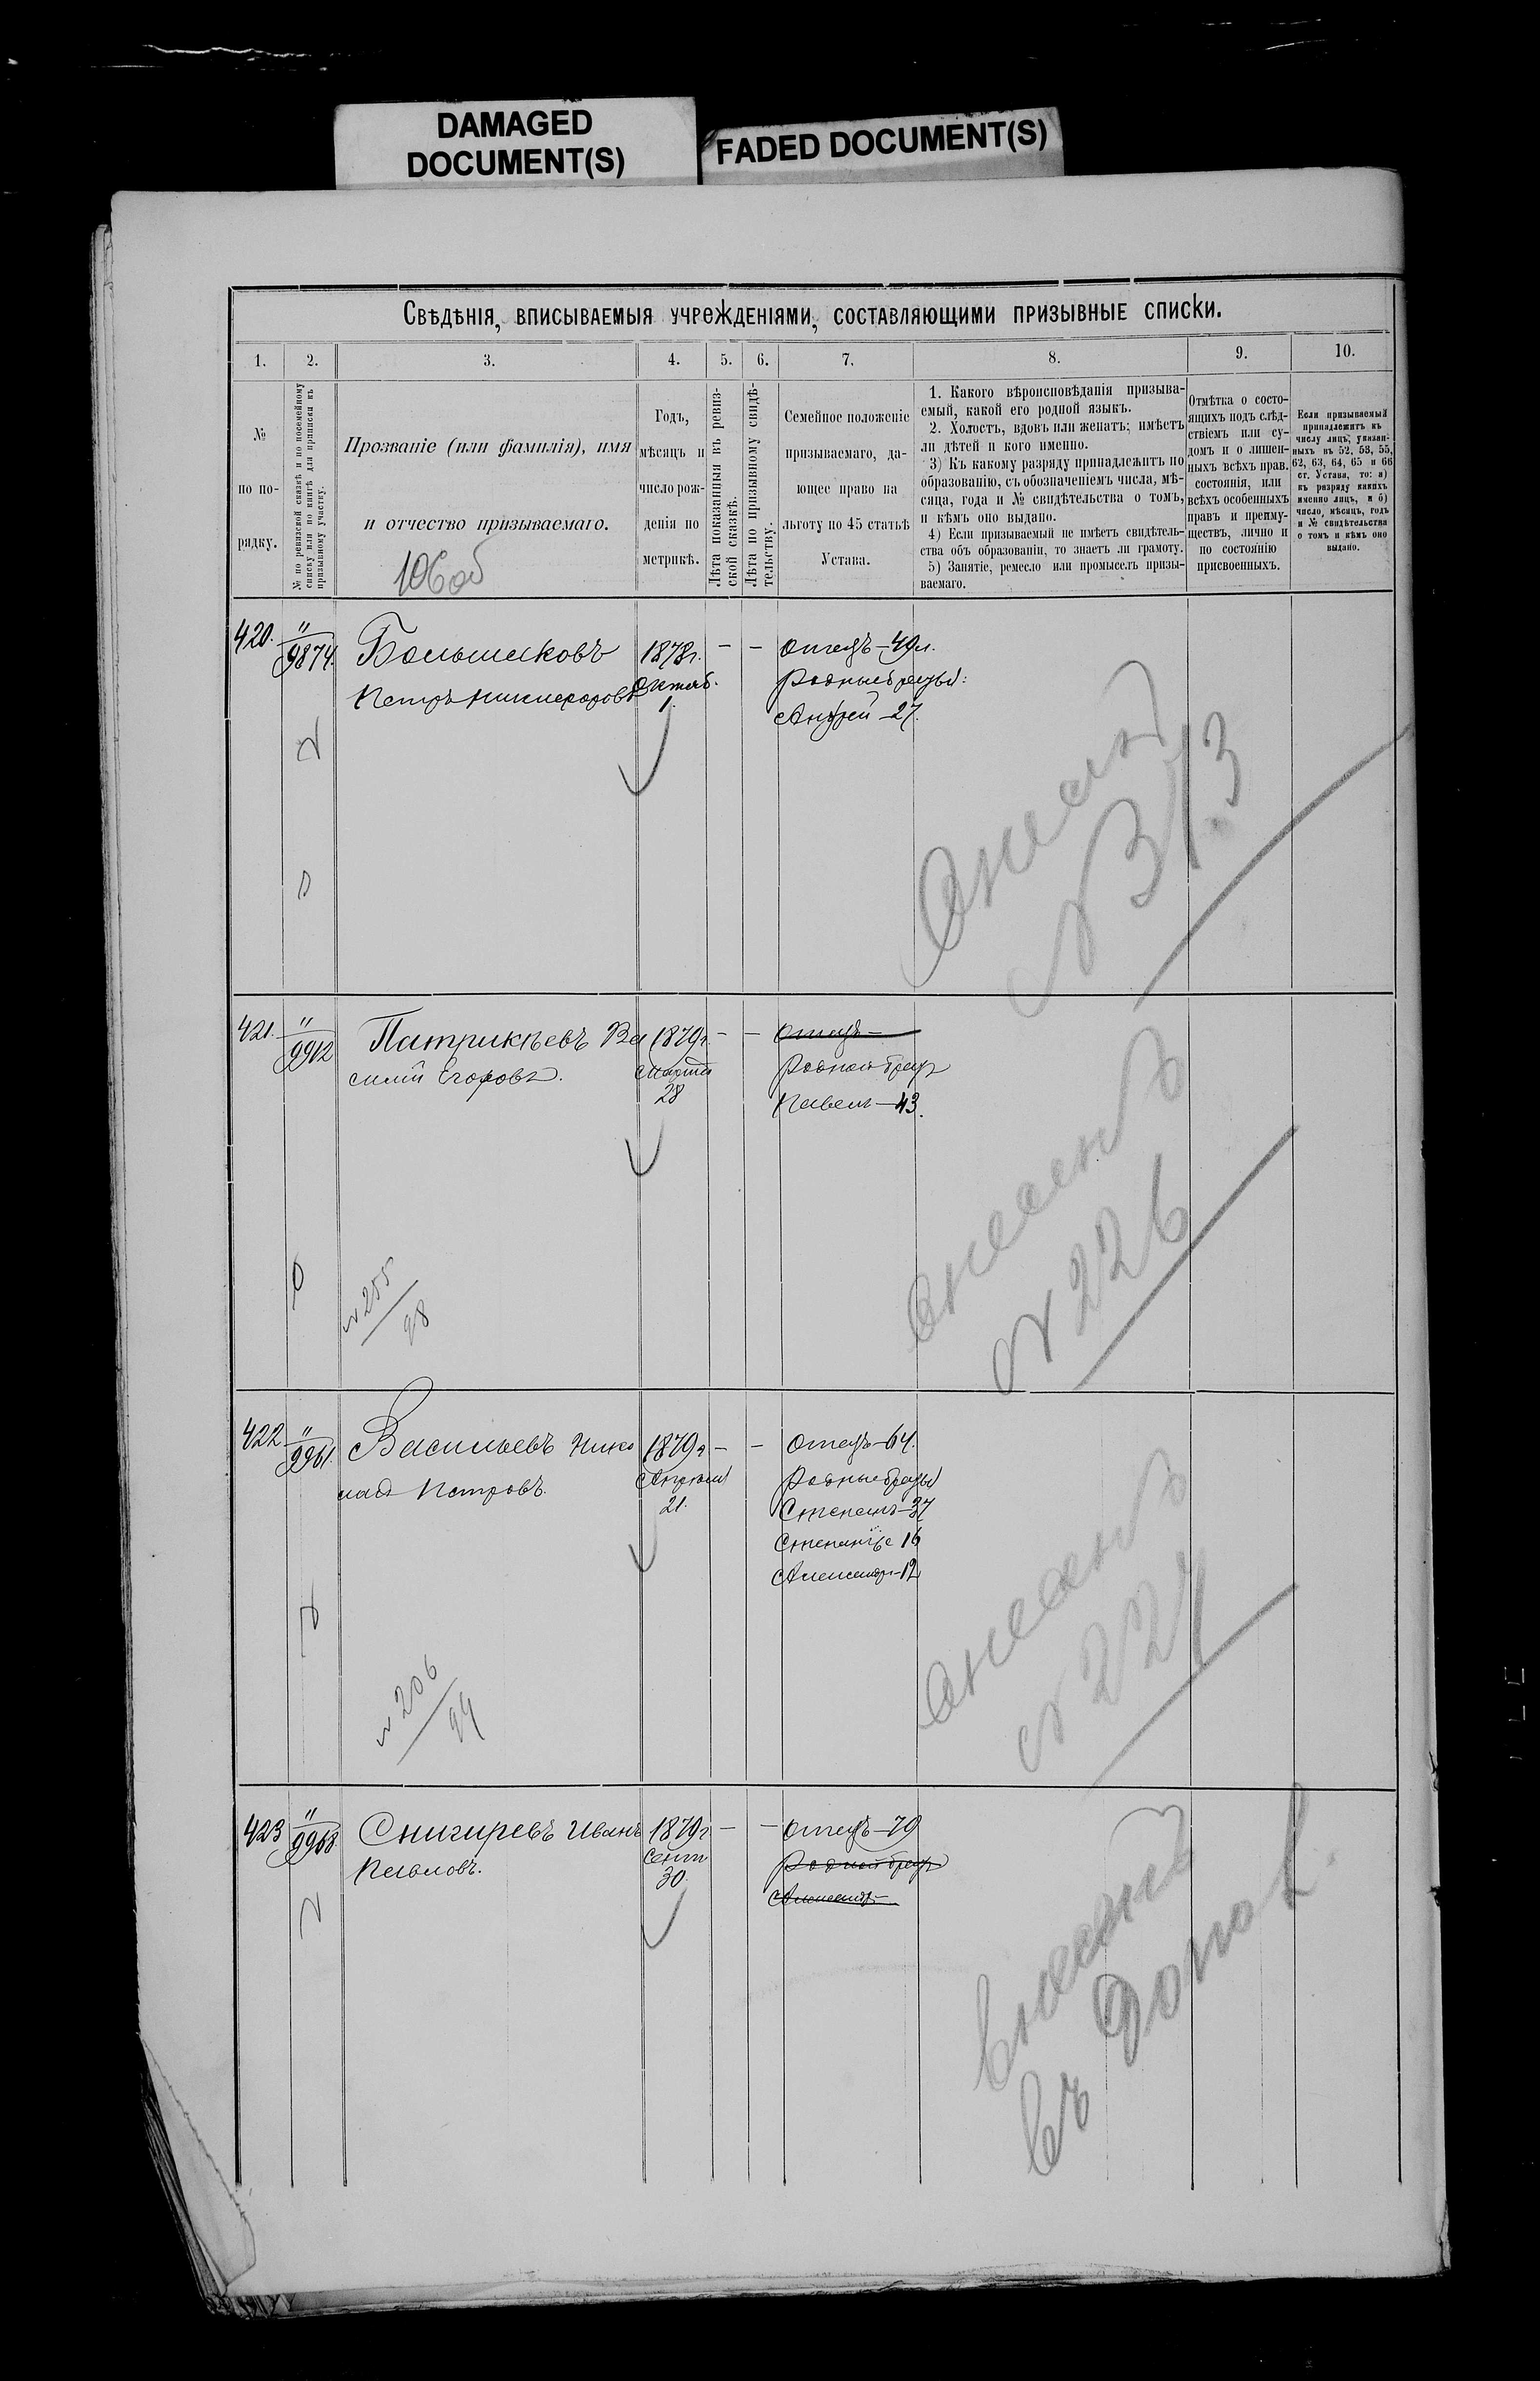 DAMAGED
DOCUMENT(S)
FADED DOCUMENT(S)
Свѣдѣнія, вписываемыя учрежденіями, составляющими призывные списки.
1. 2. 3. 4. 5. 6. 7. 8. 9. 10.
№
по по-
рядку.
№ по ревизской сказкѣ и по посемейному
списку или по книгѣ для приписки къ
призывному участку.
Прозваніе (или фамилія), имя
и отчество призываемаго.
106 об
Годъ,
мѣсяцъ и
число рож-
денія по
метрикѣ.
Лѣта показанныя въ ревиз-
ской сказкѣ.
Лѣта по призывному свидѣ-
тельству.
Семейное положеніе
призываемаго, да-
ющее право на
льготу по 45 статьѣ
Устава.
1. Какого вѣроисповѣданія призыва-
емый, какой его родной языкъ.
2. Холостъ, вдовъ или женатъ; имѣетъ
ли дѣтей и кого именно.
3) Къ какому разряду принадлежитъ по
образованію, съ обозначеніемъ числа, мѣ-
сяца, года и № свидѣтельства о томъ,
и кѣмъ оно выдано.
4) Если призываемый не имѣетъ свидѣтель-
ства объ образованіи, то знаетъ ли грамоту.
5) Занятіе, ремесло или промыселъ призы-
ваемаго.
Отмѣтка о состо-
ящихъ подъ слѣд-
ствіемъ или су-
домъ и о лишен-
ныхъ всѣхъ прав.
состоянія, или
всѣхъ особенныхъ
правъ и преиму-
ществъ, лично и
по состоянію
присвоенныхъ.
Если призываемый
принадлежитъ къ
числу лицъ, указан-
ныхъ въ 52, 53, 55,
62, 63, 64, 65 и 66
ст. Устава, то: а)
къ разряду какихъ
именно лицъ, и б)
число, мѣсяцъ, годъ
и № свидѣтельства
о томъ и кѣмъ оно
выдано.
420. " 9874. Большаковъ 1878г. — — Отецъ — 49л.
Петръ Никифоровъ Октяб. Родные братья:
1. Андрей — 27.
421. " 9912 Патрикѣевъ Ва 1879г. — — Отецъ —
силій Егоровъ. Марта Родной братъ
28 Павелъ — 43.
№ 226
№ 255
98
422 " 9961. Васильевъ Нико 1879г — — Отецъ — 64.
лай Петровъ. Апрѣля Родные братья
21. Степанъ — 37
16
Александръ — 12
№ 227
№ 206
94
423 " 9968 Снигиревъ Иванъ 1879г — — Отецъ — 79
Павловъ. Сент Родной братъ
30.
Внесенъ
въ допол.